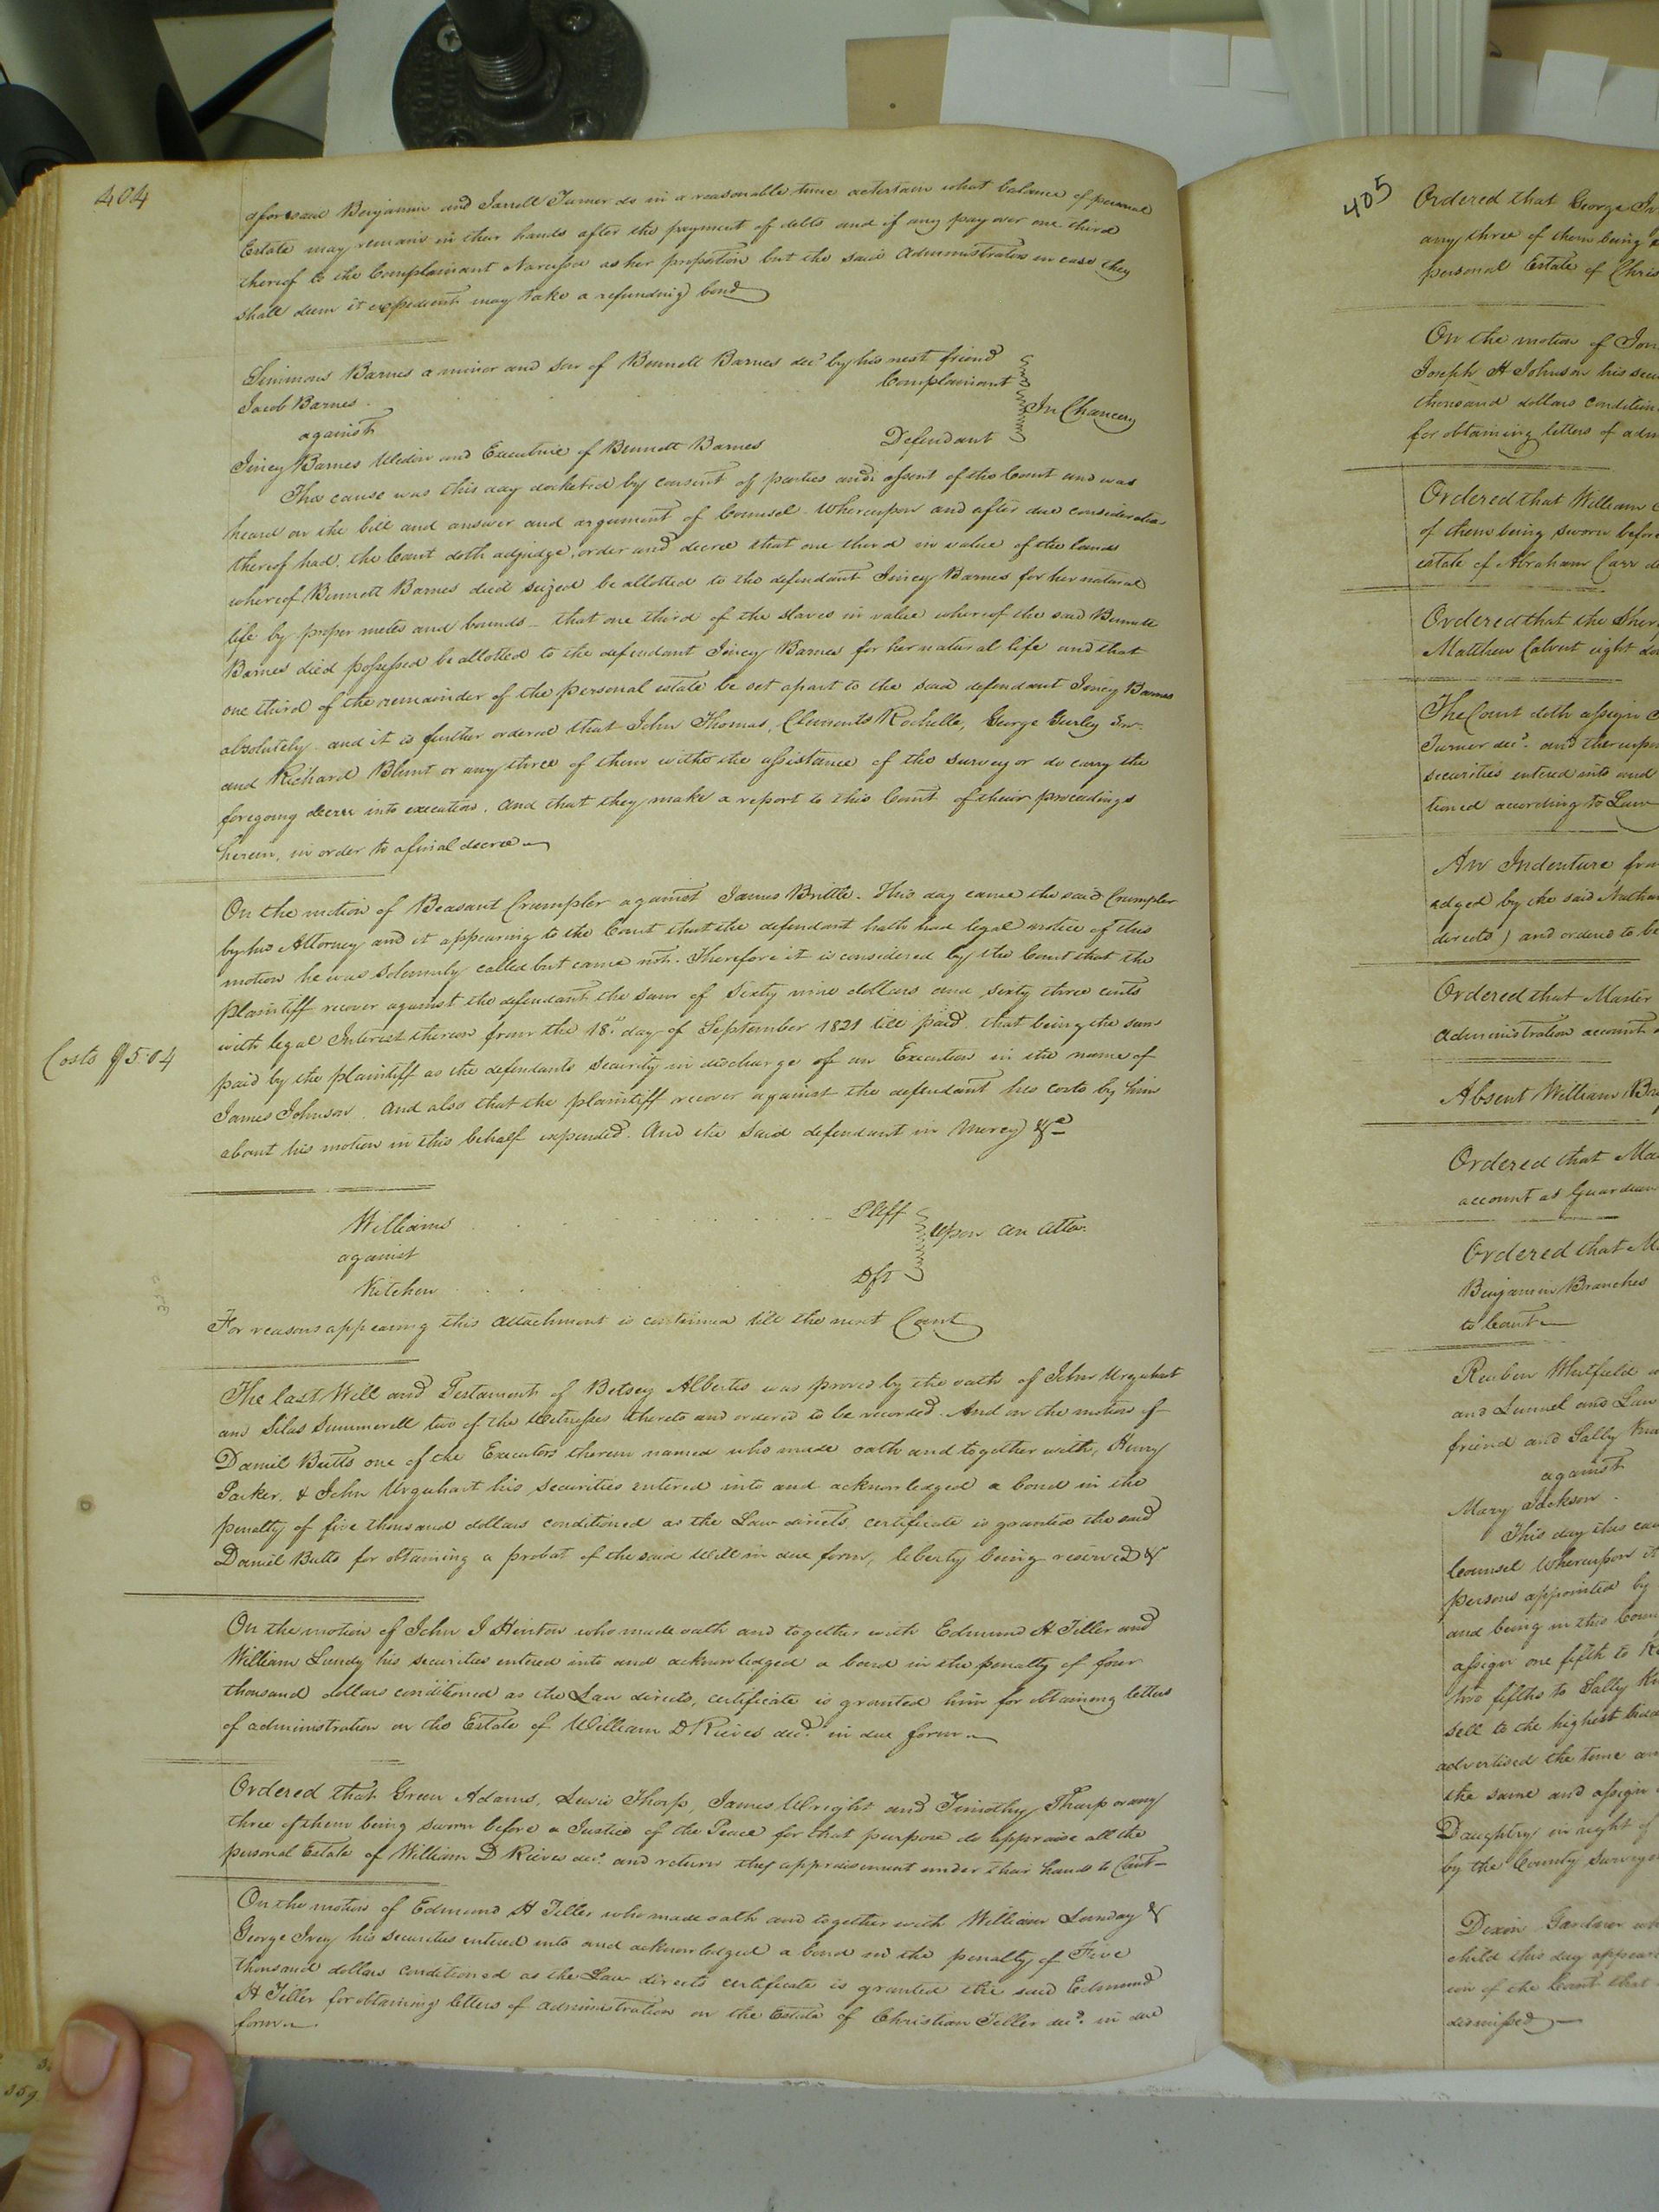 404
aforesaid Benjamin and Jarrell Turner do in a reasonable time ascertain what balance of personal
Estate may remain in their hands after the payment of debts and if any pay over one third
thereof to the Complainant Narcissa as her proportion but the said Administrators in case they
shall deem it expedient may take a refunding bond
Simmons Barnes a minor and son of Bennett Barnes decd by his next friend
Jacob Barnes . Complainant
against In Chancery
Jincey Barnes Widow and Executrix of Bennett Barnes Defendant
This cause was this day docketed by consent of parties and assent of the Court and was
heard on the bill and answer and argument of Counsel. Whereupon and after due consideration
thereof had, the Court doth adjudge, order and decree that one third in value of the lands
whereof Bennett Barnes died seized be allotted to the defendant Jincey Barnes for her natural
life by proper metes and bounds – that one third of the slaves in value whereof the said Bennett
Barnes died possessed be allotted to the defendant Jincey Barnes for her natural life and that
one third of the remainder of the personal estate be set apart to the said defendant Jincey Barnes
absolutely. and it is further ordered that John Thomas, Clements Rochelle, George Gurley Senr.
and Richard Blunt or any three of them with the assistance of the surveyor do carry the
foregoing decree into execution. And that they make a report to this Court of their proceedings
herein, in order to a final decree
On the motion of Beasant Crumpler against James Brittle. This day came the said Crumpler
by his Attorney and it appearing to the Court that the defendant hath had legal notice of this
motion he was solemnly called but came not. Therefore it is considered by the Court that the
plaintiff recover against the defendant the sum of Sixty nine dollars and sixty three cents
with legal Interest thereon from the 18th day of September 1821 till paid, that being the sum
Costs $5.04
paid by the plaintiff as the defendants security in discharge of an Execution in the name of
James Johnson. And also that the plaintiff recover against the defendant his costs by him
about his motion in this behalf expended. And the said defendant in Mercy &c
Williams Plff
against Upon an Atta.
Kitchen Dft
For reasons appearing this attachment is continued till the next Court
The last Will and Testament of Betsey Albertis was proved by the oath of John Urquhart
and Silas Summerell two of the Witnesses thereto and ordered to be recorded. And on the motion of
Daniel Butts one of the Executors therein named who made oath and together with, Henry
Parker, & John Urquhart his securities entered into and acknowledged a bond in the
penalty of five thousand dollars conditioned as the Law directs, certificate is granted the said
Daniel Butts for obtaining a probat of the said Will in due form, liberty being reserved &
On the motion of John J Hinton who made oath and together with Edmund H Tiller and
William Lundy his securities entered into and acknowledged a bond in the penalty of four
thousand dollars conditioned as the Law directs, certificate is granted him for obtaining letters
of administration on the Estate of William D Rieves decd. in due form
Ordered that Green Adams, Lewis Thorp, James Wright and Timothy Tharp or any
three of them being sworn before a Justice of the Peace for that purpose do appraise all the
personal Estate of William D Rieves decd. and return the appraisement under their hands to Court
On the motion of Edmund H Tiller who made oath and together with William Lunday &
George Ivey his securities entered into and acknowledged a bond in the penalty of Five
thousand dollars conditioned as the Law directs certificate is granted the said Edmund
H Tiller for obtaining letters of administration on the Estate of Christian Tiller decd. in due
form
359
405
Ordered that George
any three of them being
personal Estate of Chris
On the motion of
Joseph H Johnson his secu
thousand dollars condition
for obtaining letters of adm
Ordered that William
of them being sworn before
estate of Abraham Carr d
Ordered that the Sher
Matthew Calvert eight do
The Court doth assign
Turner decd. and thereupon
securities entered into and
tioned according to Law
An Indenture fro
edged by the said Nathan
directs) and ordered to be
Ordered that Master
Administration account
Absent William
Ordered that Ma
account as Guardian
Ordered that M
Benjamin Branches
to Court
Reuben Whitfield
and Lemuel and Law
friend and Sally
against
Mary Jackson .
This day this cau
Counsel Whereupon it
persons appointed by
and being in this Coun
assign one fifth to
two fifths to Sally
sell to the highest bidd
advertised the time an
the same and assign
Daughtry in right of
by the County Surveyo
Dixon Gardner wh
child this day appear
ion of the Court that
dismissed